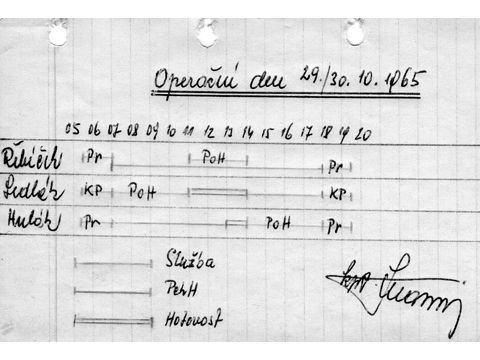 Operační den 29./30. 10. 1965
05 06 07 08 09 10 11 12 13 14 15 16 17 18 19 20
Řibička Pr PoH Pr
Sedlák KP PoH KP
Hulák Pr PoH Pr
Služba
PohH
Hotovost
kpt.